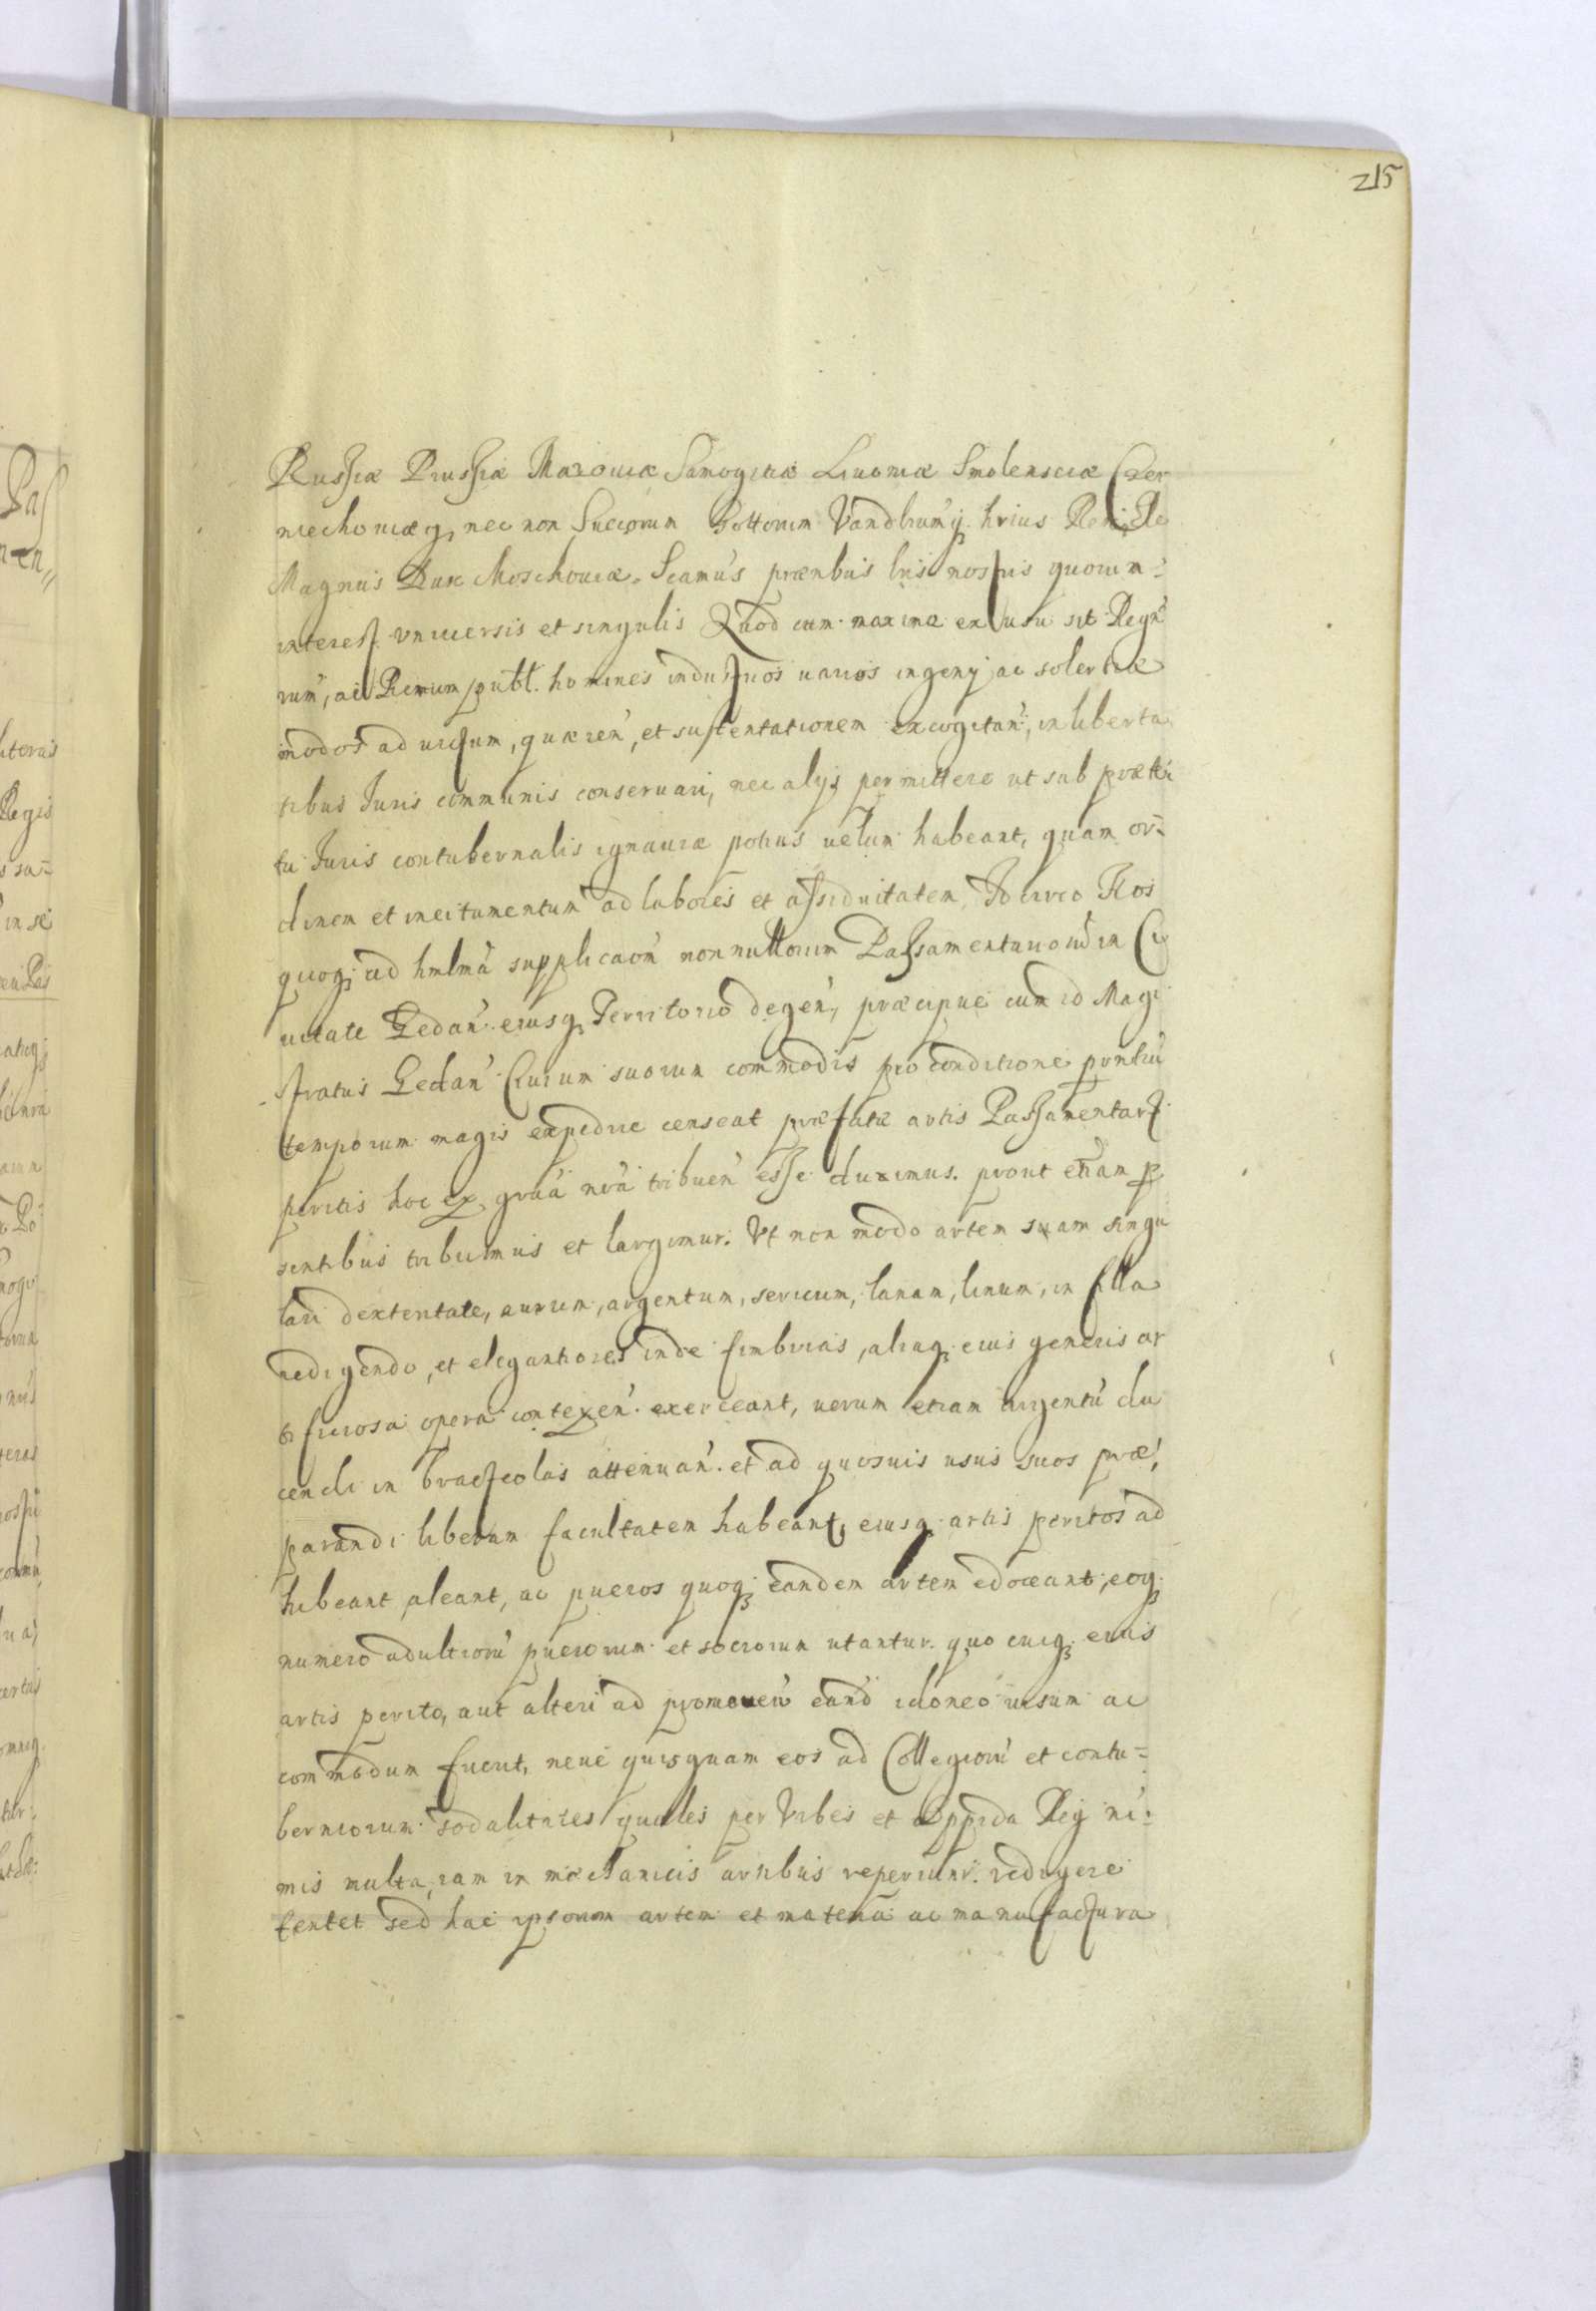 215
Russiæ Prussiæ Mazouiæ Samogitiæ Liuoniæ Smolensciæ Czer
niechouiæq, nec non Suecorum Gottorum Vandlrumq. hrius Rex,
Magnus Dux Moschouiæ. Scamus præntbus lris nostris quorum
interest vniuersis et singulis Quod cum maxime ex usu sit Regn
rum, ac Rerum publ. homines industrios uarios ingenij ac solertiæ
modos ad uictum, quæren, et sustentationem excogitan, in liberta
tibus Juris communis conseruari, nec alijs permittere ut sub prætex
tu Juris contubernalis ignauiæ potius uelum habeant, quam or=
dinem et incitamentum ad labores et assiduitatem, Idcirco Nos
quoq, ad hmlma supplicaon nonnullorum Passamentariorum in Ci
uitate Gedan. eiusq, Territorio degen, præcipue cum id Magi
stratus Gedan Ciuium suorum commodis pro conditione pntiu
temporum magis expedire censeat præfatæ artis Passamentari
peritis hoc ex graa nra tribuen esse duximus. prout etiam p
sentibus tribuimus et largimur. Vt non modo artem suam singu
lari dexteritate, aurum, argentum, sericum, lanam, linum, in filla
redigendo, et elegantiores inde fimbrias, aliaq, eius generis ar
tificiosa opera contexen. exerceant, uerum etiam argentu du
cendi in bracteolas attenuan. et ad quosuis usus suos præ,
parandi liberam facultatem habeant, eiusq, artis peritos ad
hibeant, aleant, ac pueros quoq, eandem artem edoceant, eoq,
numero adultioru puerorum et sociorum utantur. quo cuiq, eius
artis perito, aut alteri ad promouen eand idoneo uisum ac
commodum fuerit, neue quisquam eos ad Collegioru et contu=
berniorum sodalitates quales per Vrbes et Oppida Reg ni=
mis multa, iam in mechanicis artibus reperiunr. redigere
tentet sed hac ipsorum artem et materia ac manufactura